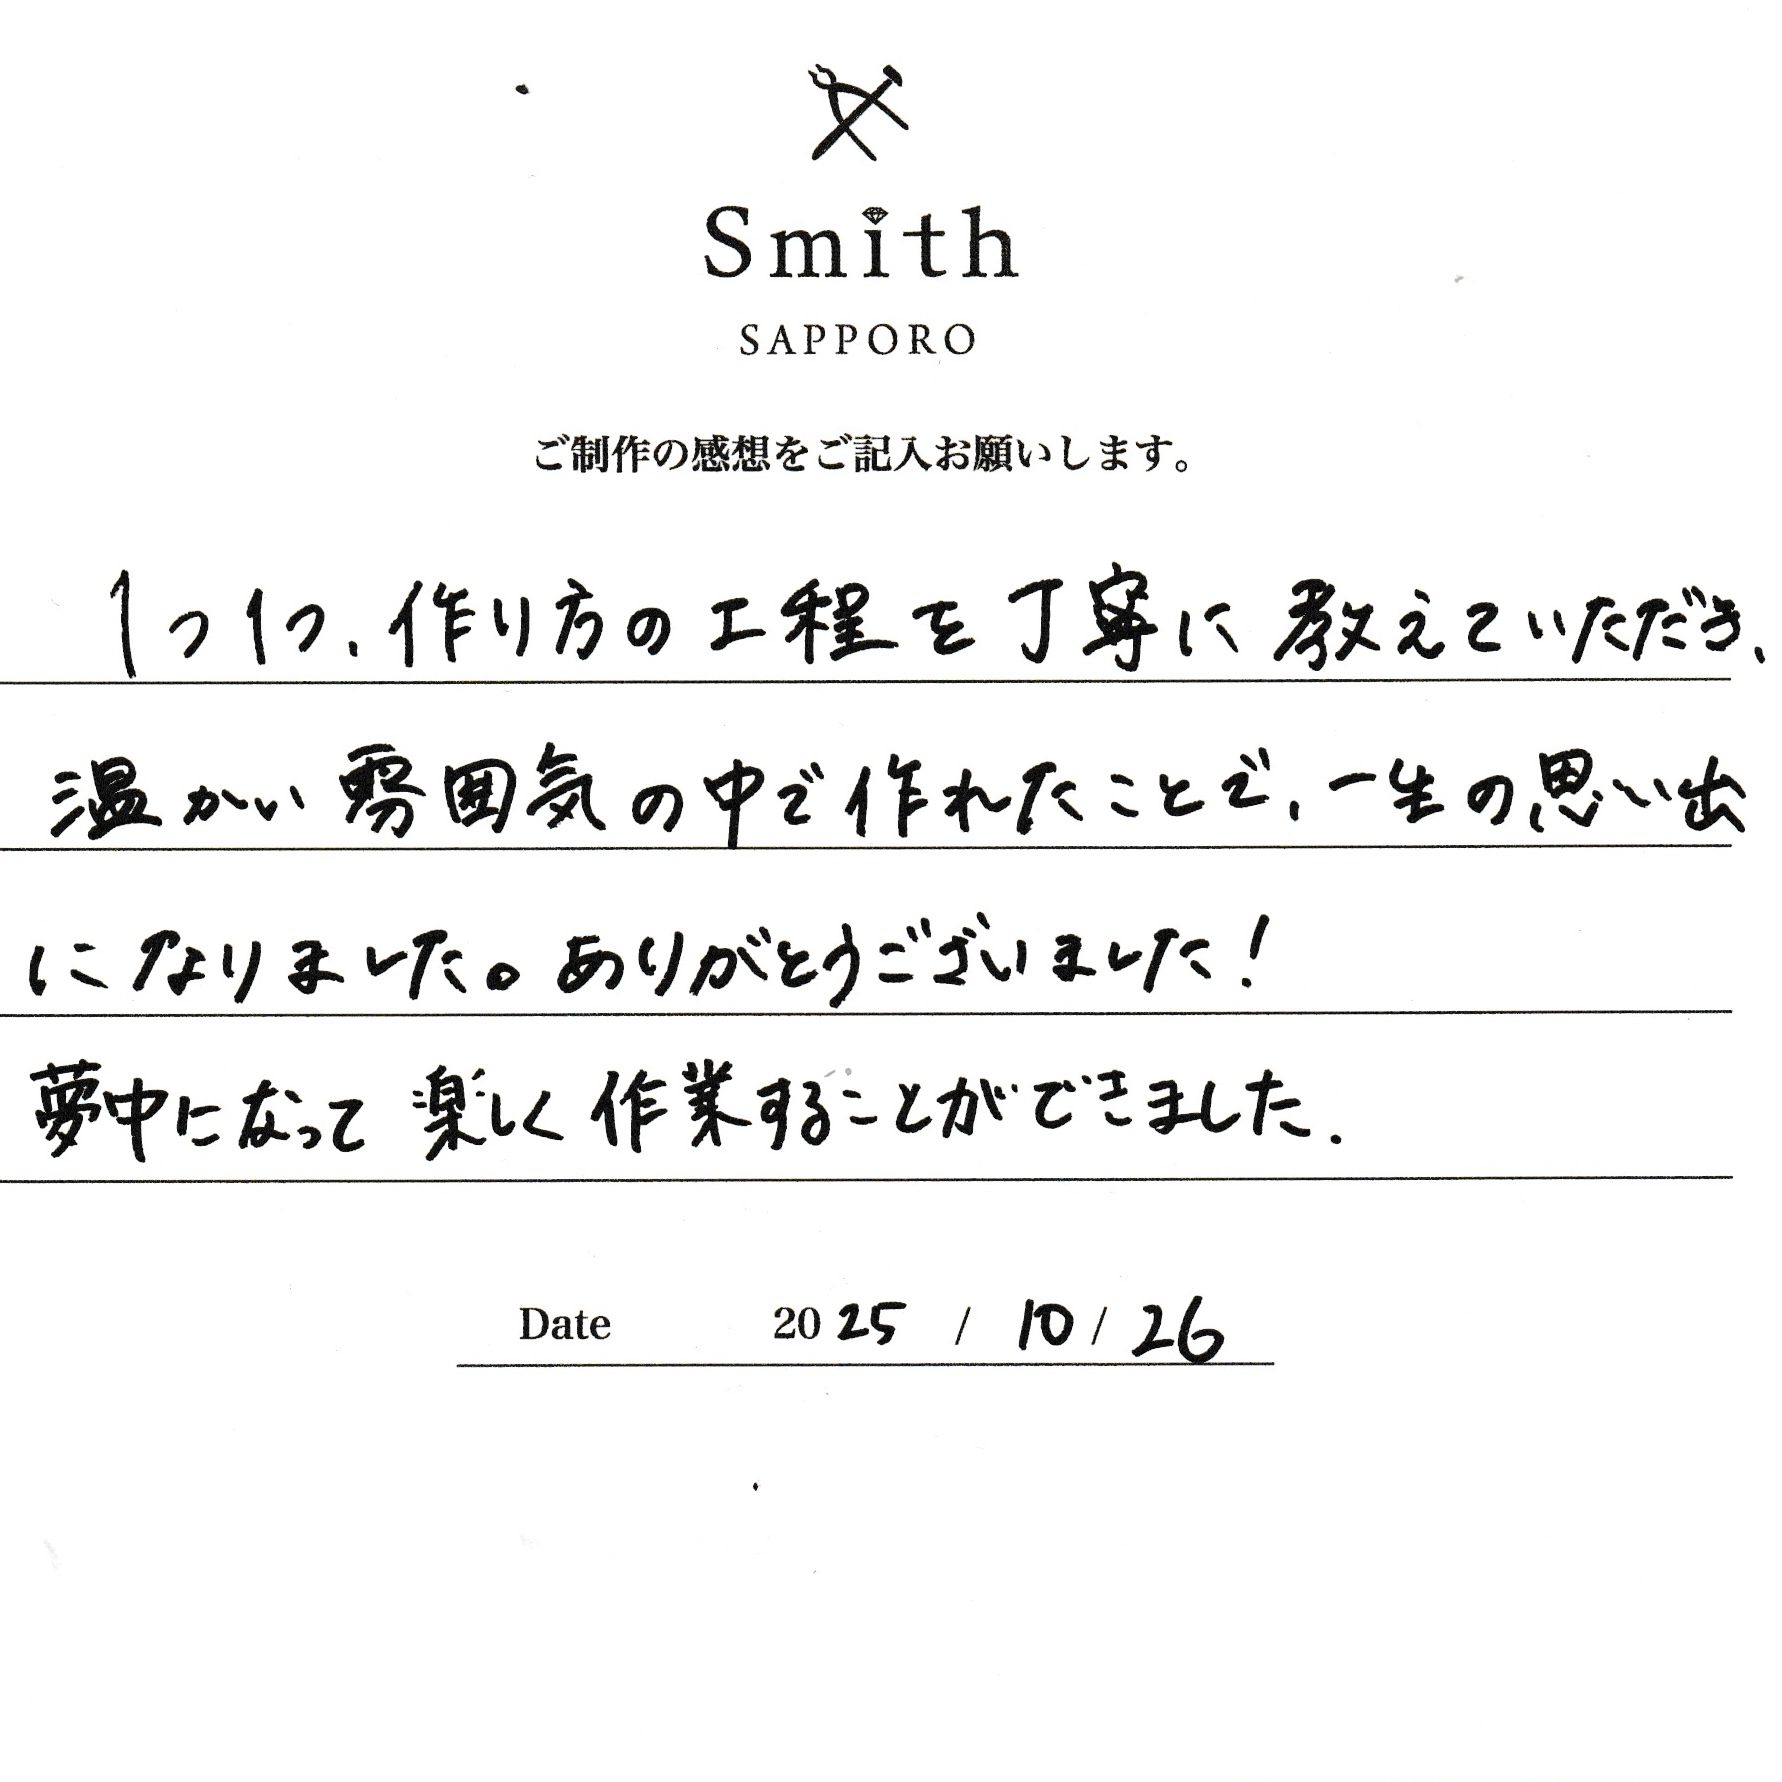 Smith
SAPPORO
ご制作の感想をご記入お願いします。
1つ1つ、作り方の工程を丁寧に教えていただき、
温かい雰囲気の中で作れたことで、一生の思い出
になりました。ありがとうございました!
夢中になって楽しく作業することができました.
Date 2025 / 10 / 26